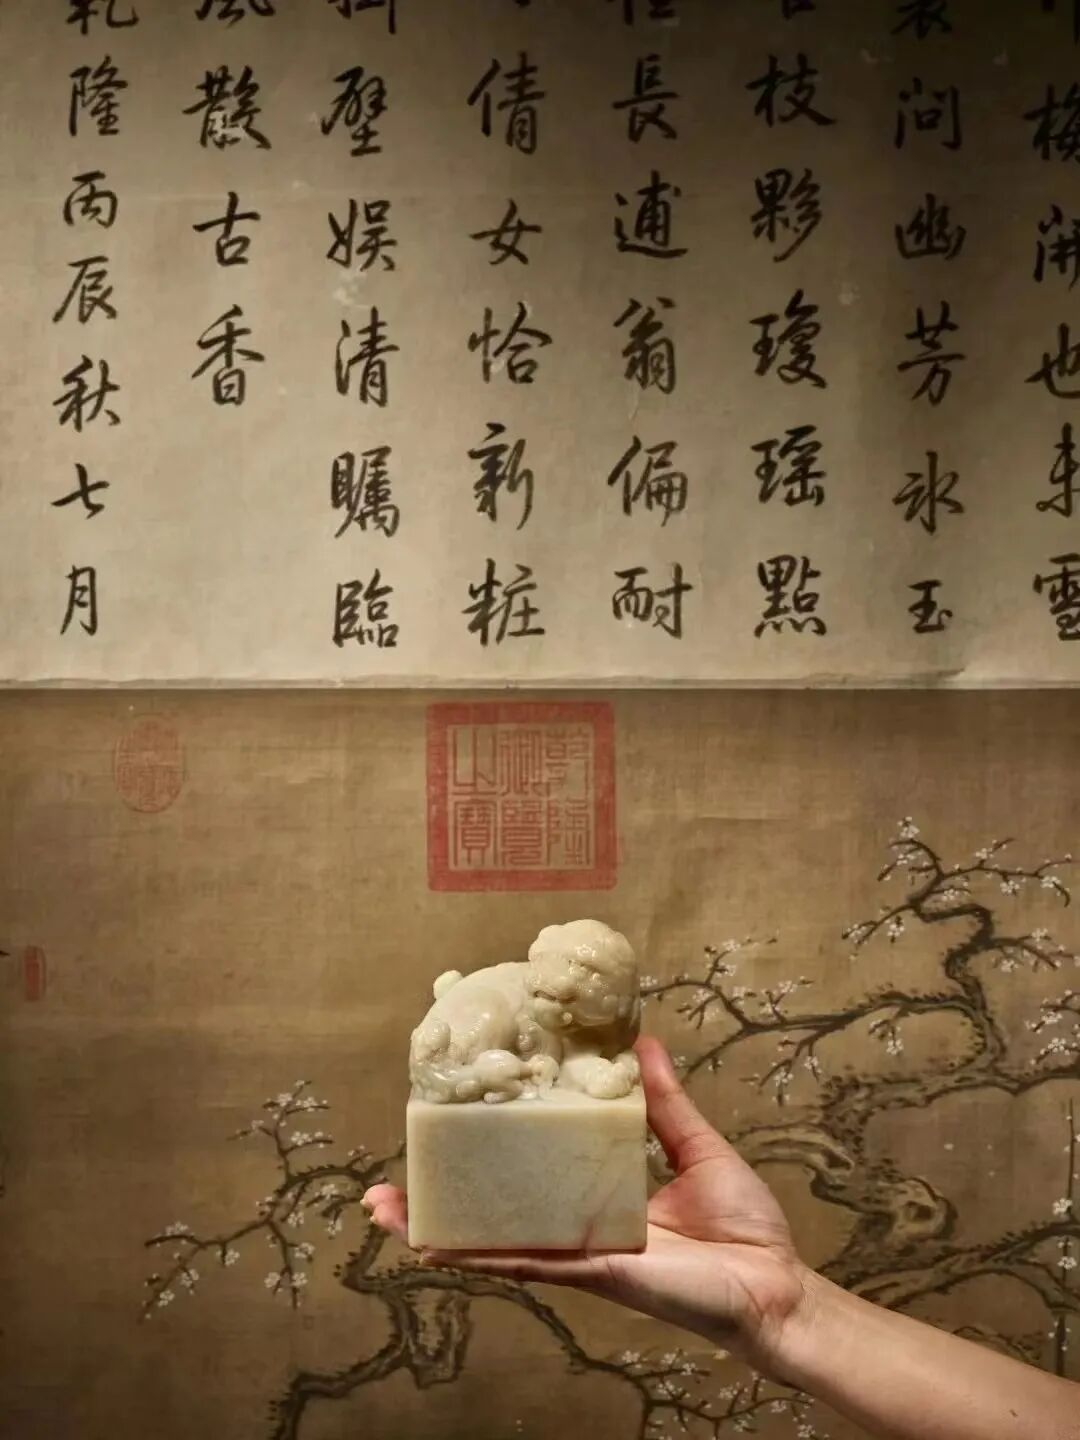 梅開也未雪
問幽芳氷玉
枝夥瓊瑶點
長逋翁偏耐
倩女恰新粧
壁娯清矚臨
風㪚古香
乾隆丙辰秋七月
乾隆
御覽
之寶